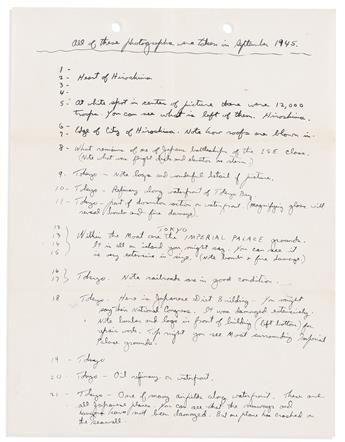 All of these photographs were taken in September 1945.
1 -
2 - Heart of Hiroshima
3 -
4 -
5 - At white spot in center of picture there were 12,000
troops. You can see what is left of them. Hiroshima.
6 -
7 - Edge of City of Hiroshima. Note how roofs are blown in.
8 - What remains of one of Japans battleships of the ISE Class.
(Note what was flight deck and elevator
9. Tokyo - Note large and wonderful detail of picture.
10. Tokyo - Refinery along waterfront of Tokyo Bay
11 - Tokyo - part of downtown section on waterfront (magnifying glass will
reveal bomb and fire damage).
12 TOKYO
13 Within the Moat are the IMPERIAL PALACE grounds.
14 It is all an island you might say. You can see it
15 is very extensive in size. (Note bomb & fire damage)
16
17 Tokyo. Note railroads are in good condition.
18 Tokyo. Here is Japanese Diet Building. You might
say their National Congress. It was damaged extensively.
Note lumber and logs in front of building (left bottom) for
repair work. Top right you see Moat surrounding Imperial
Palace grounds.
19 - Tokyo
20 - Tokyo - Oil refinery on waterfront.
21 - Tokyo - One of many airfields along waterfront. These are
all Japanese planes. You can see that the runways and
hangars have not been damaged. But one plane has crashed on
the seawall.